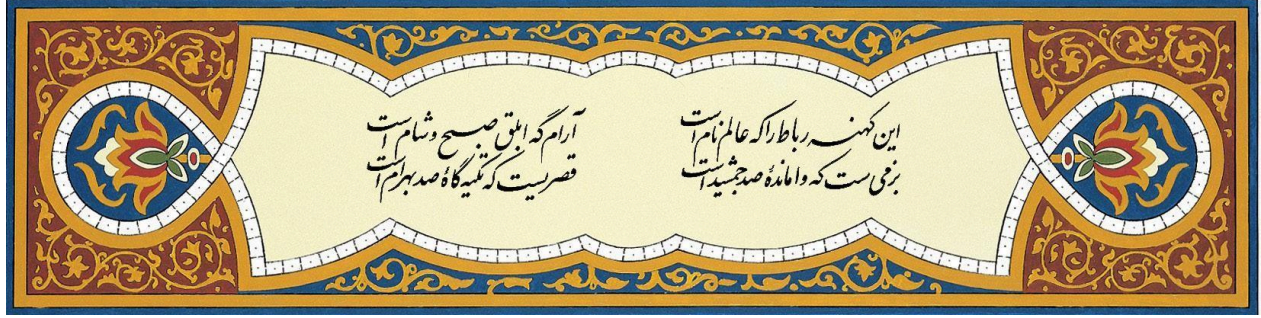 این کهنه رباط را که عالم نام است
آرام گه ابلق صبح و شام است
بزمی ست که واماندهٔ صد جمشید است
قصریست که تکیه گاهٔ صد بهرام است